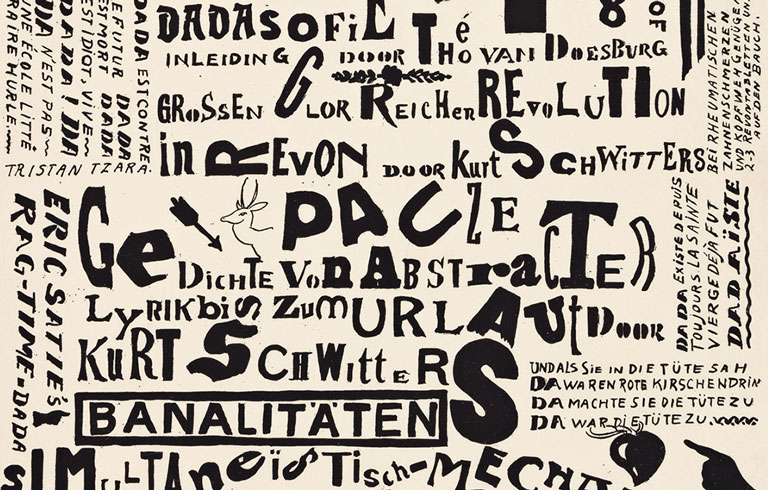 DADA EST CONTRE
E FUTUR DADA
EST MORT DADA
EST IDIOT, VIVE
DADA! DA
DA N'EST PAS
UNE ÉCOLE LITTÉ
RAIRE HURLE
TRISTAN TZARA.
DADASOFIE
INLEIDING DOOR THÉO VAN DOESBURG
GROSSEN GLORREICHEN REVOLUTION
in REVON DOOR KURT SCHWITTERS
8
OF
BEI RHEUMATISCHEN
ZAHNENSCHMERZEN
UND KOPFWEH GENÜGEN
2-3 REVONTABLETTEN UN
AUF DEN BAUCH
ERIC SATIE'S
RAG-TIME-DADA
Ge DADA ZE
GEDICHTE VON ABSTRACTER
LYRIK bis zum URLAUT DOOR
KURT SCHWITTERS
BANALITÄTEN
DADA EXISTE DEPUIS
TOUJOURS. LA SAINTE
VIERGE DÉJÀ FUT
DADAÏSTE
UND ALS SIE IN DIE TÜTE SAH
DA WAREN ROTE KIRSCHEN DRIN
DA MACHTE SIE DIE TÜTE ZU
DA WAR DIE TÜTE ZU.
SIMULTANEÏSTISCH-MECHA